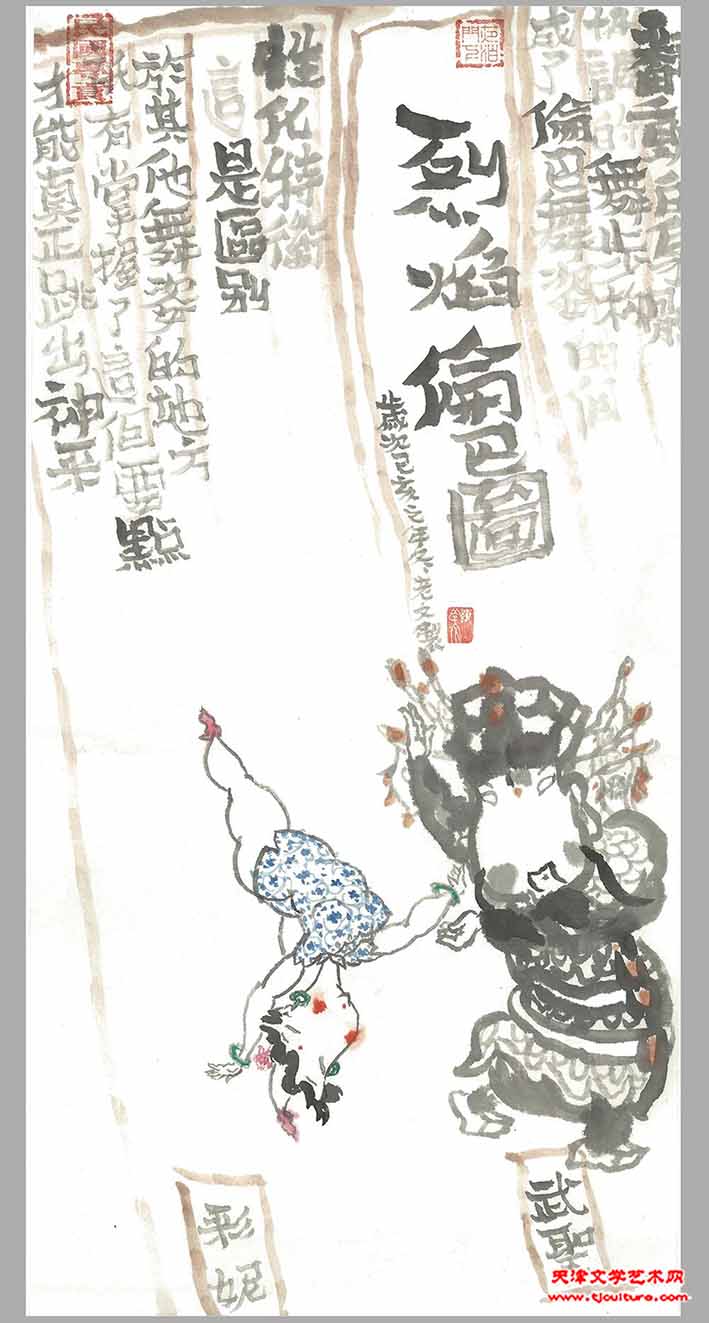 協調的舞
成了
倫巴舞姿的個
烈焰倫巴圖
歲次己亥之年冬老文製
性化特徵
這是區別
於其他舞姿的地方
有掌握了這但要點
才能真正跳出神采
武聖
彩妮
天津文学艺术网
www.tjculture.com